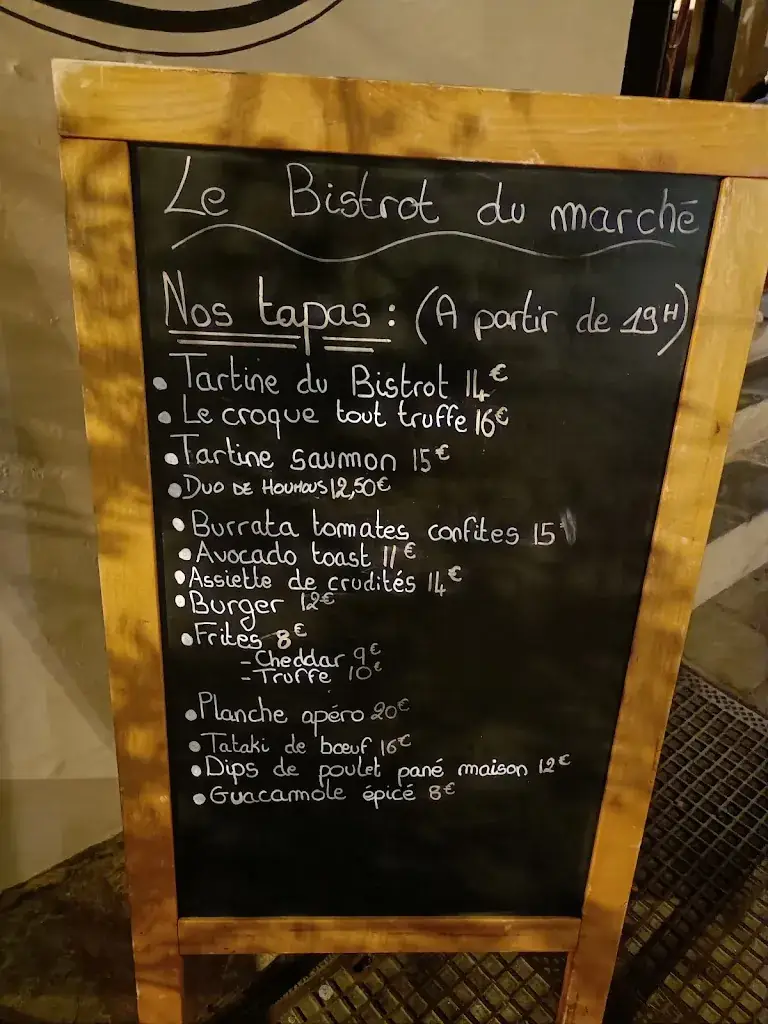 Le Bistrot du marché
Nos tapas : (A partir de 19H)
• Tartine du Bistrot 14€
• Le croque tout truffe 16€
• Tartine saumon 15€
• DUO DE HOUMOUS 12,50€
• Burrata tomates confites 15
• Avocado toast 11€
• Assiette de crudités 14€
• Burger 12€
• Frites 8€
- Cheddar 9€
- Truffe 10€
• Planche apéro 20€
• Tataki de bœuf 16€
• Dips de poulet pané maison 12€
• Guacamole épicé 8€